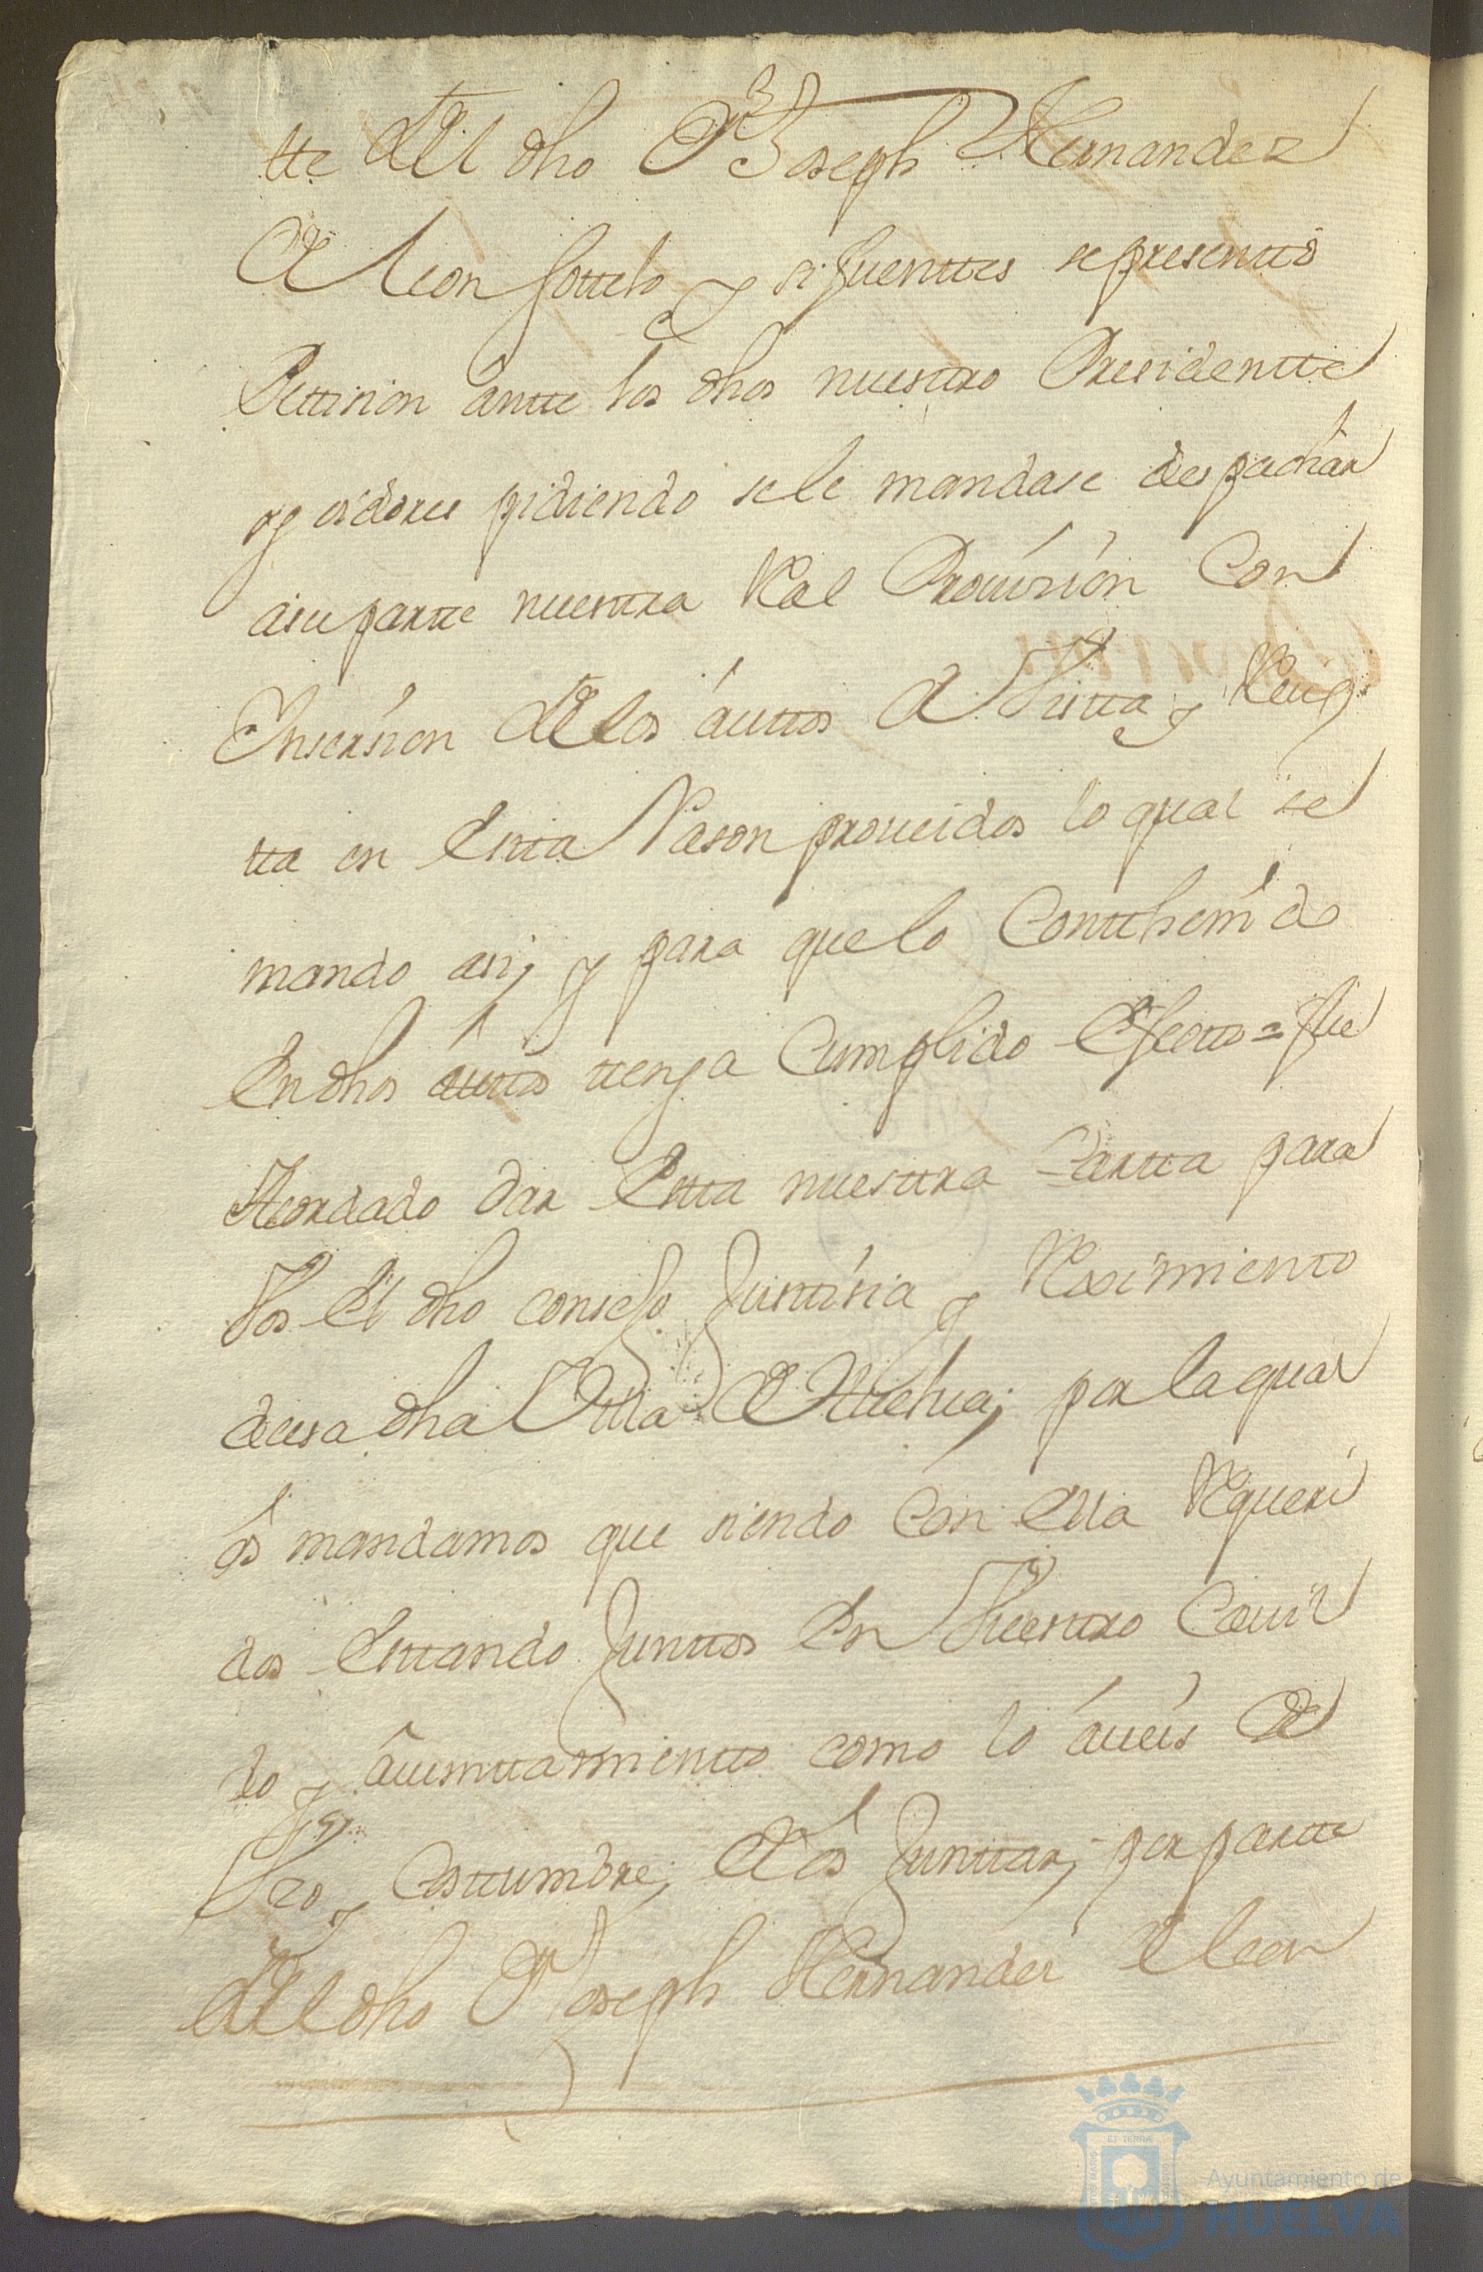 tte del dho Dn Joseph Hernandez
de leon sottelo y sifuenttes se presentto
Pettision antte los dhos nuestro Presidentte
y oidores pidiendo se le mandase despachar
a su partte nuestra Real Provision Con
Insersion de los auttos de Vistta y Reuis
tta en Estta Rason proueidos lo qual se
mando asi, y para que lo Conthenido
En dhos auttos tenga Cumplido Efecto = fue
Acordado dar Estta nuestra Cartta para
Vos El dho consejo Justisia y Reximiento
de esa dha Villa de Huelua; por la qual
os mandamos que siendo Con Ella Requeri
dos Esttando Junttos En Vuestro Cauil
do y aiunttamientto como lo áueis de
Vso y Costtumbre, de os Junttar, por partte
del dho Dn Joseph Hernandes de leon
Ayuntamiento de
HUELVA